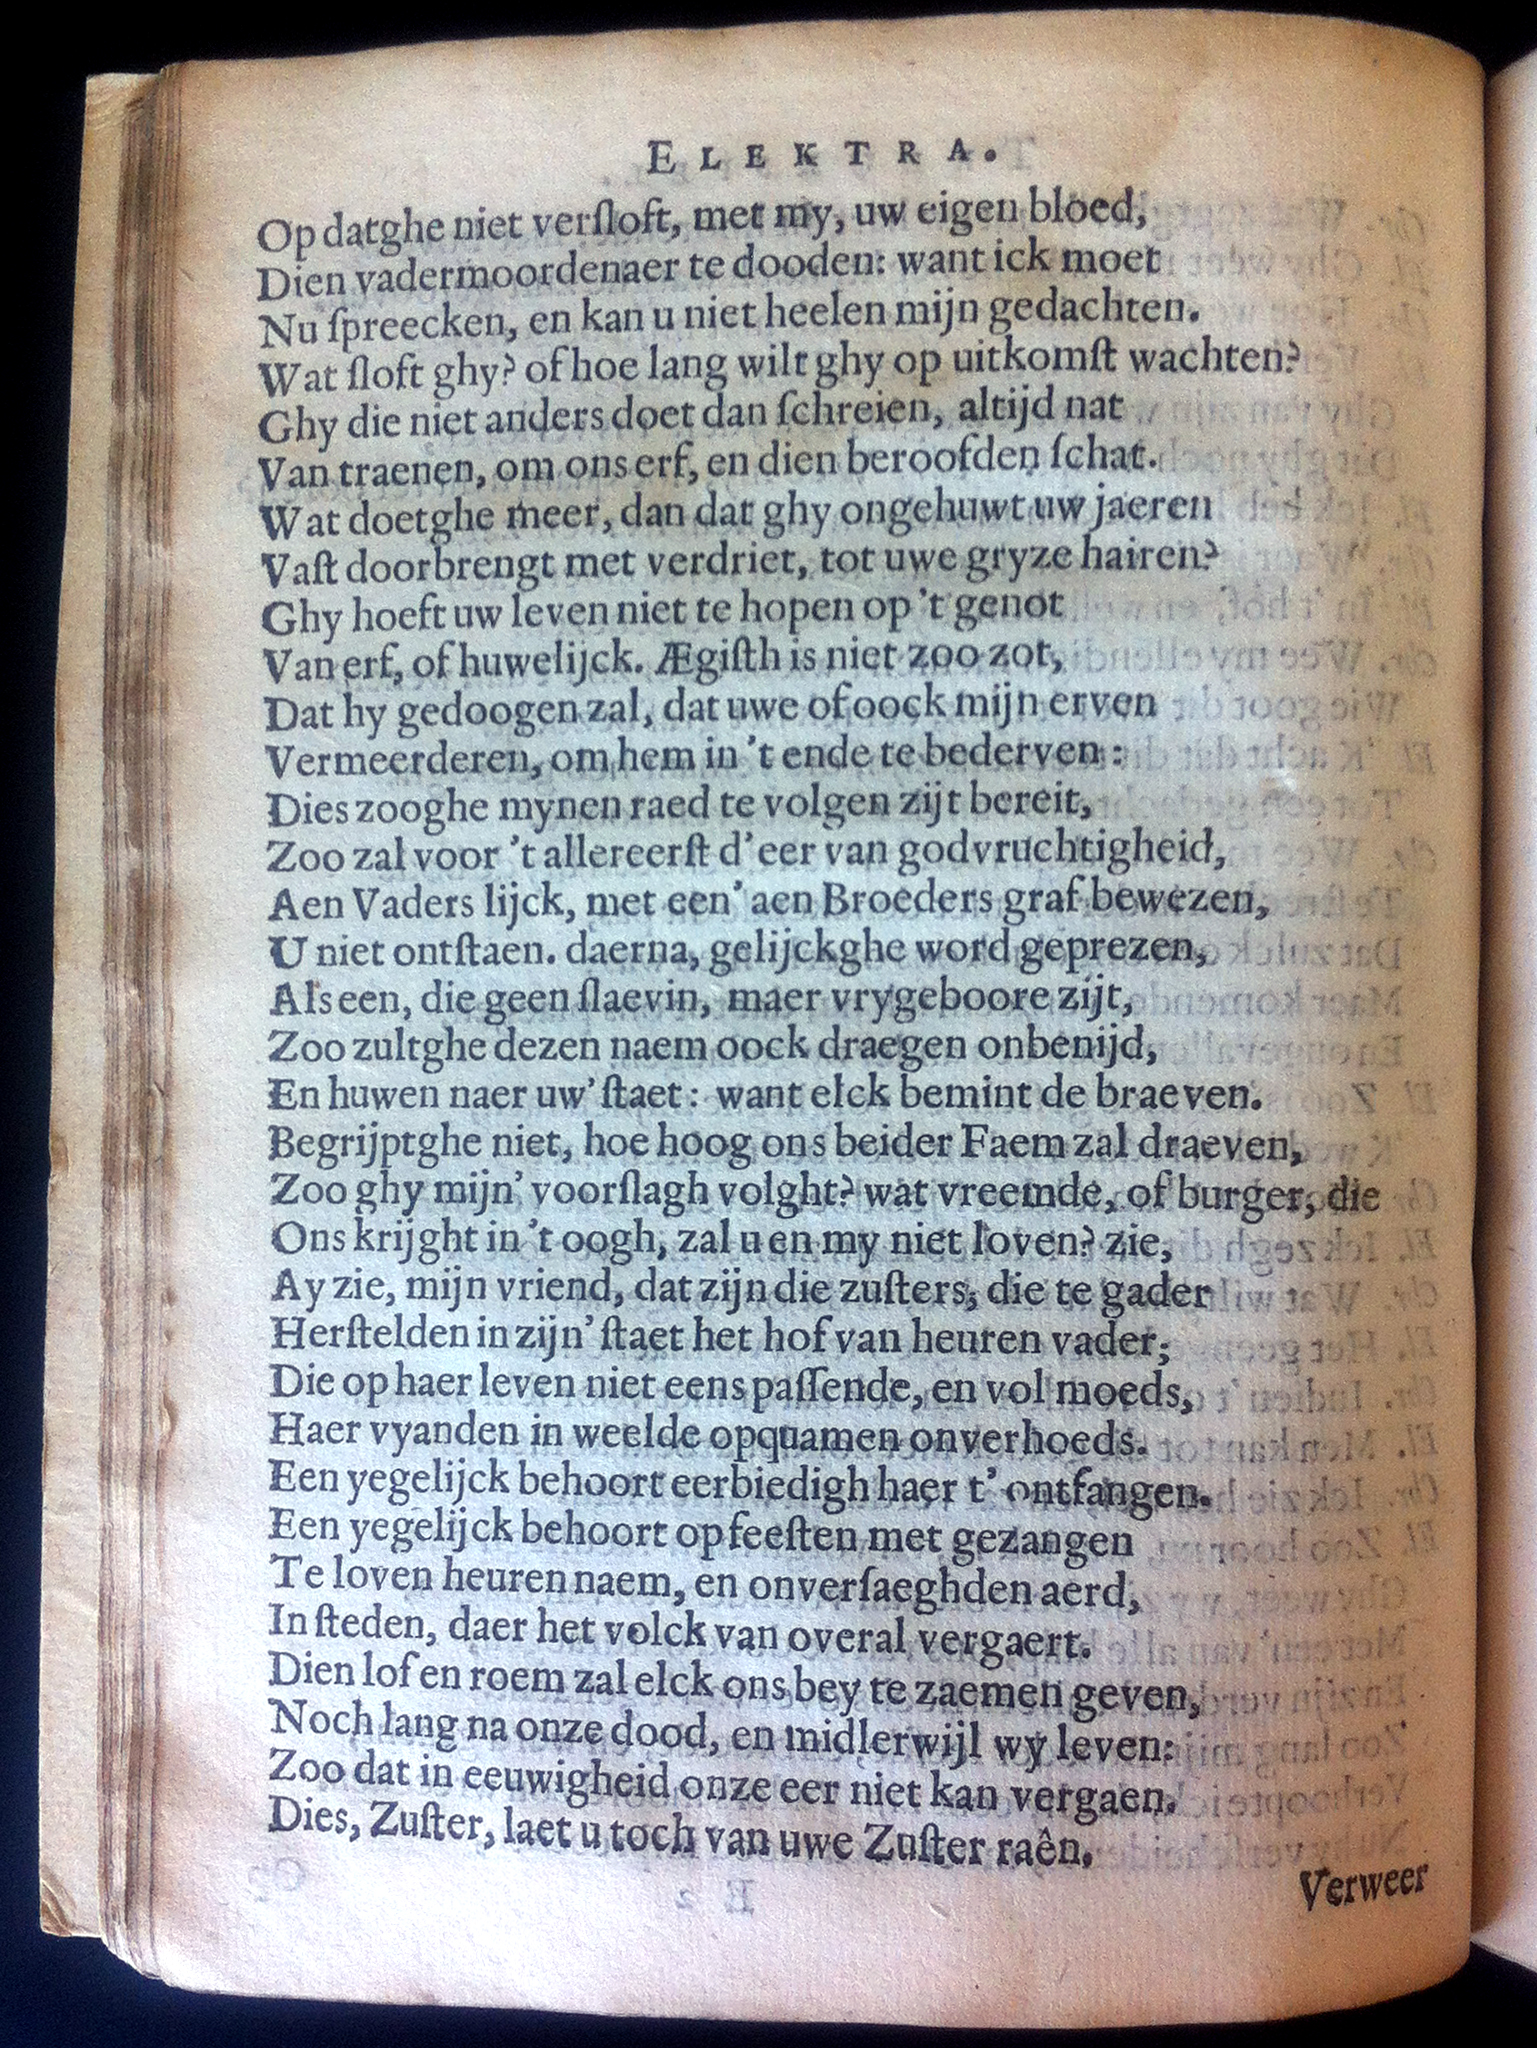 ELEKTRA.
Op datghe niet verſloft, met my, uw eigen bloed,
Dien vadermoordenaer te dooden: want ick moet
Nu ſpreecken, en kan u niet heelen mijn gedachten.
Wat ſloft ghy? of hoe lang wilt ghy op uitkomſt wachten?
Ghy die niet anders doet dan ſchreien, altijd nat
Van traenen, om ons erf, en dien beroofden ſchat.
Wat doetghe meer, dan dat ghy ongehuwt uw jaeren
Vaſt doorbrengt met verdriet, tot uwe gryze hairen?
Ghy hoeft uw leven niet te hopen op 't genot
Van erf, of huwelijck. Ægiſth is niet zoo zot,
Dat hy gedoogen zal, dat uwe of oock mijn erven
Vermeerderen, om hem in 't ende te bederven:
Dies zooghe mynen raed te volgen zijt bereit,
Zoo zal voor 't allereerſt d'eer van godvruchtigheid,
Aen Vaders lijck, met een' aen Broeders graf bewezen,
U niet ontſtaen. daerna, gelijckghe word geprezen,
Als een, die geen ſlaevin, maer vrygeboore zijt,
Zoo zultghe dezen naem oock draegen onbenijd,
En huwen naer uw' ſtaet: want elck bemint de braeven.
Begrijptghe niet, hoe hoog ons beider Faem zal draeven,
Zoo ghy mijn' voorſlagh volght? wat vreemde, of burger, die
Ons krijght in 't oogh, zal u en my niet loven? zie,
Ay zie, mijn vriend, dat zijn die zuſters, die te gader
Herſtelden in zijn' ſtaet het hof van heuren vader;
Die op haer leven niet eens paſſende, en vol moeds,
Haer vyanden in weelde opquamen onverhoeds.
Een yegelijck behoort eerbiedigh haer t' ontfangen.
Een yegelijck behoort op feeſten met gezangen
Te loven heuren naem, en onverſaeghden aerd,
In ſteden, daer het volck van overal vergaert.
Dien lof en roem zal elck ons bey te zaemen geven,
Noch lang na onze dood, en midlerwijl wy leven:
Zoo dat in eeuwigheid onze eer niet kan vergaen.
Dies, Zuſter, laet u toch van uwe Zuſter raên.
Verweer